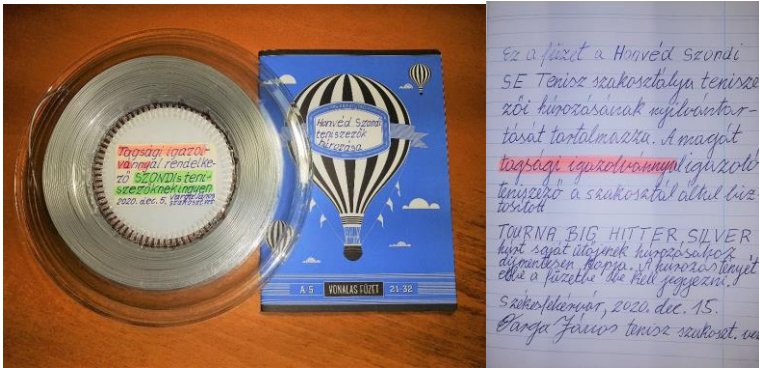 Tagsági igazol-
vánnyal rendelke-
ző SZONDIs teni-
szezőknek ingyen
2020. dec. 5. Varga János
szakoszt. vez.
Honvéd Szondi
teniszezők
húrozása
A/5 VONALAS FÜZET 21-32
Ez a füzet a Honvéd Szondi
SE Tenisz szakosztálya tenisze
zői húrozásának nyilvántar-
tását tartalmazza. A magát
tagsági igazolvannyal igazoló
teniszező a szakosztál által biz
tosított
TOURNA BIG HITTER SILVER
húrt saját ütőjének húrozásához
díjmentesen kapja. A húrozás tényét
ebbe a füzetbe be kell jegyezni.
Székesfehérvár, 2020. dec. 15.
Varga János tenisz szakoszt. vez